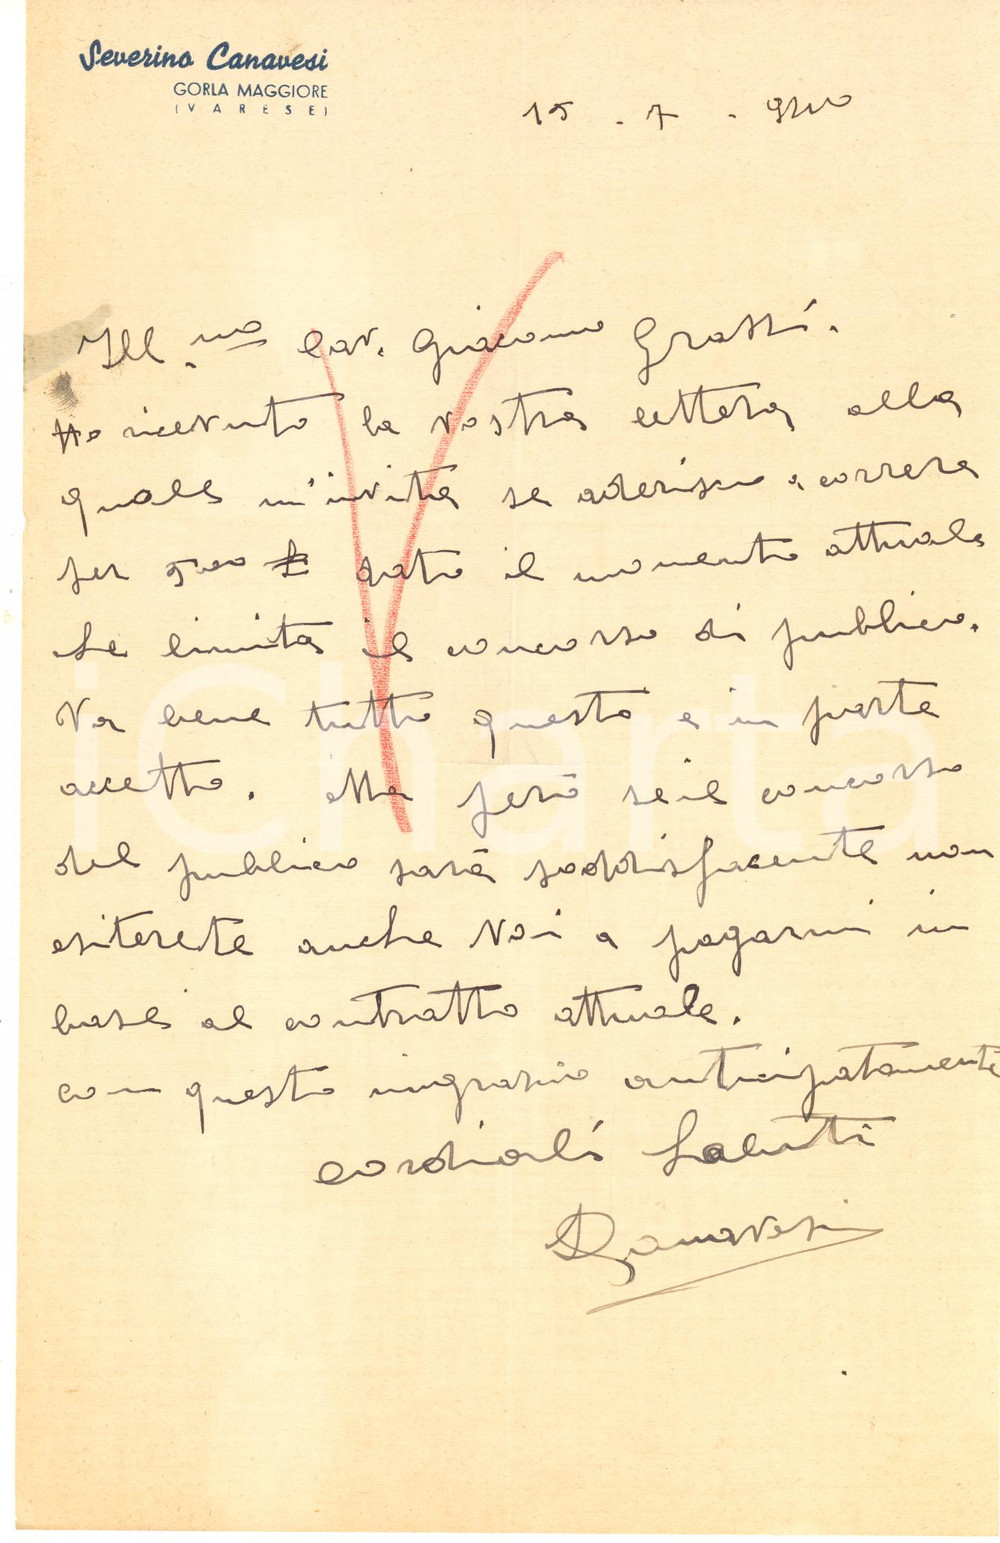 Severino Canavesi
GORLA MAGGIORE
(VARESE)
15 . 7 . 940
Ill.mo Cav. Giacomo Grassi.
Ho ricevuto la vostra lettera alla
quale m'invita se aderisco a correre
per 500 £ dato il momento attuale
che limita il concorso di pubblico.
Va bene tutto questo e in parte
accetto. Ma però se il concorso
del pubblico sarà soddisfacente non
esiterete anche Voi a pagarmi in
base al contratto attuale.
con questo ringrazio anticipatamente
cordiali Saluti
SCanavesi
iCharta